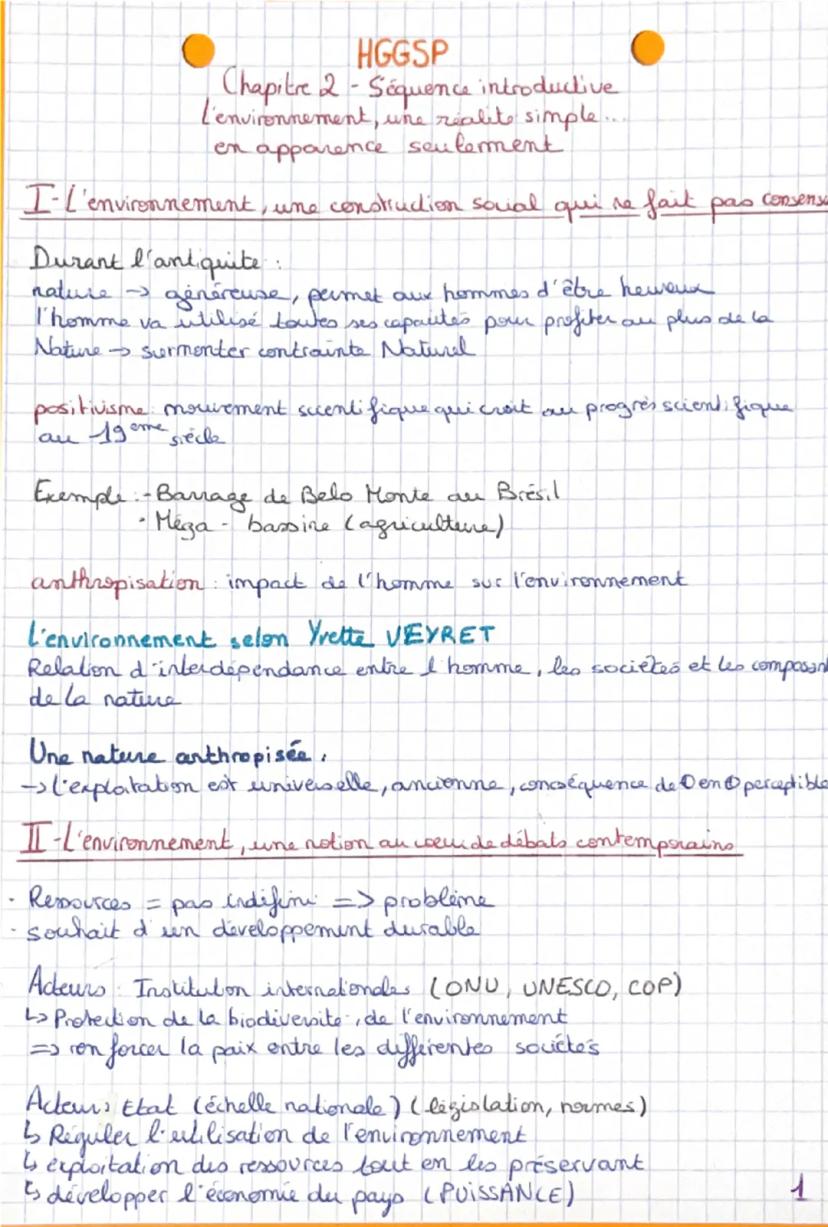 HGGSP
Chapitre 2 - Séquence introductive
L'environnement, une réalité simple...
en apparence seulement
I-L'environnement, une construction social qui ne fait pas consens
Durant l'antiquite :
nature -> généreuse, permet aux hommes d'être heureux
l'homme va utilisé toutes ses capacités pour profiter au plus de la
Nature -> surmonter contrainte Naturel
positivisme: mouvement scientifique qui croit au progrès scientifique
au 19ème siècle
Exemple :- Barrage de Belo Monte au Brésil
• Méga - bassine (agriculture)
anthropisation : impact de l'homme sur l'environnement
L'environnement selon Yvette VEYRET
Relation d'interdépendance entre l'homme, les sociétés et les composan
de la nature
Une nature anthropisée,
-> l'exploitation est universelle, ancienne, conséquence de ⊕ en ⊕ perceptible
II-L'environnement, une notion au coeur de débats contemporains
· Ressources = pas indéfini => problème
· souhait d'un développement durable
Acteurs : Institution internationales (ONU, UNESCO, COP)
↳ Protection de la biodiversité, de l'environnement
=> renforcer la paix entre les différentes sociétés
Acteurs Etat (échelle nationale) (législation, normes)
↳ Réguler l'utilisation de l'environnement
↳ exploitation des ressources tout en les préservant
↳ développer l'économie du pays (PUISSANCE)
1